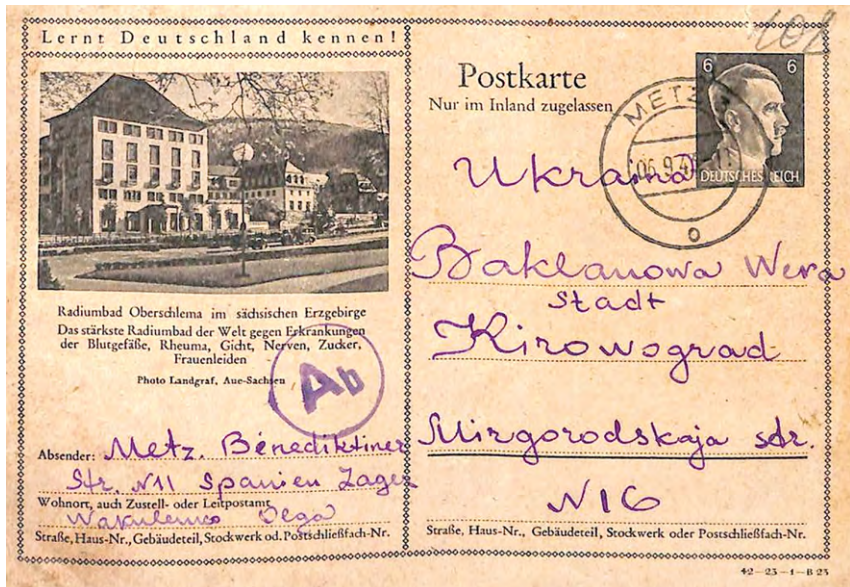 Lernt Deutschland kennen!
Radiumbad Oberschlema im sächsischen Erzgebirge
Das stärkste Radiumbad der Welt gegen Erkrankungen
der Blutgefäße, Rheuma, Gicht, Nerven, Zucker,
Frauenleiden
Photo Landgraf, Aue-Sachsen
Ab
Absender: Metz. Bénediktiner
Str. N11 Spanien Lager
Wohnort, auch Zustell- oder Leitpostamt
Wakulenko Olga
Straße, Haus-Nr., Gebäudeteil, Stockwerk od. Postschließfach-Nr.
Postkarte
Nur im Inland zugelassen
6 6
DEUTSCHES REICH
METZ
06.9.4
o
Ukraina
Baklanowa Wera
Stadt
Kirowograd
Mirgorodskaja str.
N16
Straße, Haus-Nr., Gebäudeteil, Stockwerk oder Postschließfach-Nr.
42-23-1-B 23